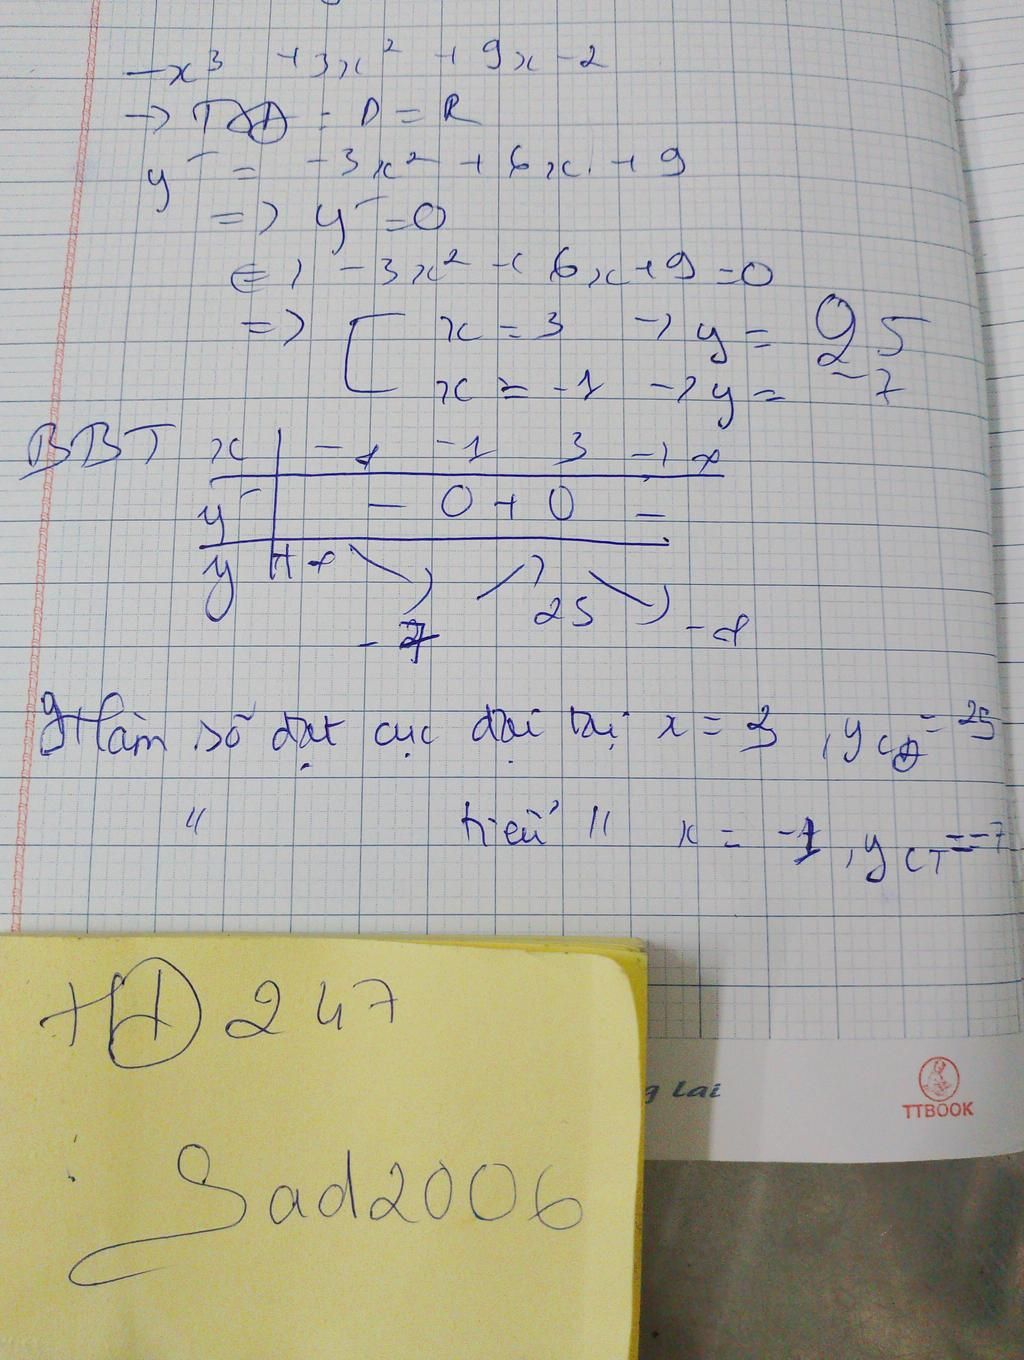 -x³ + 3x² + 9x - 2
→ TXĐ : D = R
y' = -3x² + 6x + 9
=> y' = 0
<=> -3x² + 6x + 9 = 0
=> [ x = 3 → y = 25
x = -1 → y = -7
BBT x | -∞ -1 3 +∞
y' | - 0 + 0 -
y | +∞ ↘ -7 ↗ 25 ↘ -∞
Hàm số đạt cực đại tại x = 3 , y CĐ = 25
" tiểu " x = -1 , y CT = -7
HĐ 247
Sad2006
g Lai
TTBOOK